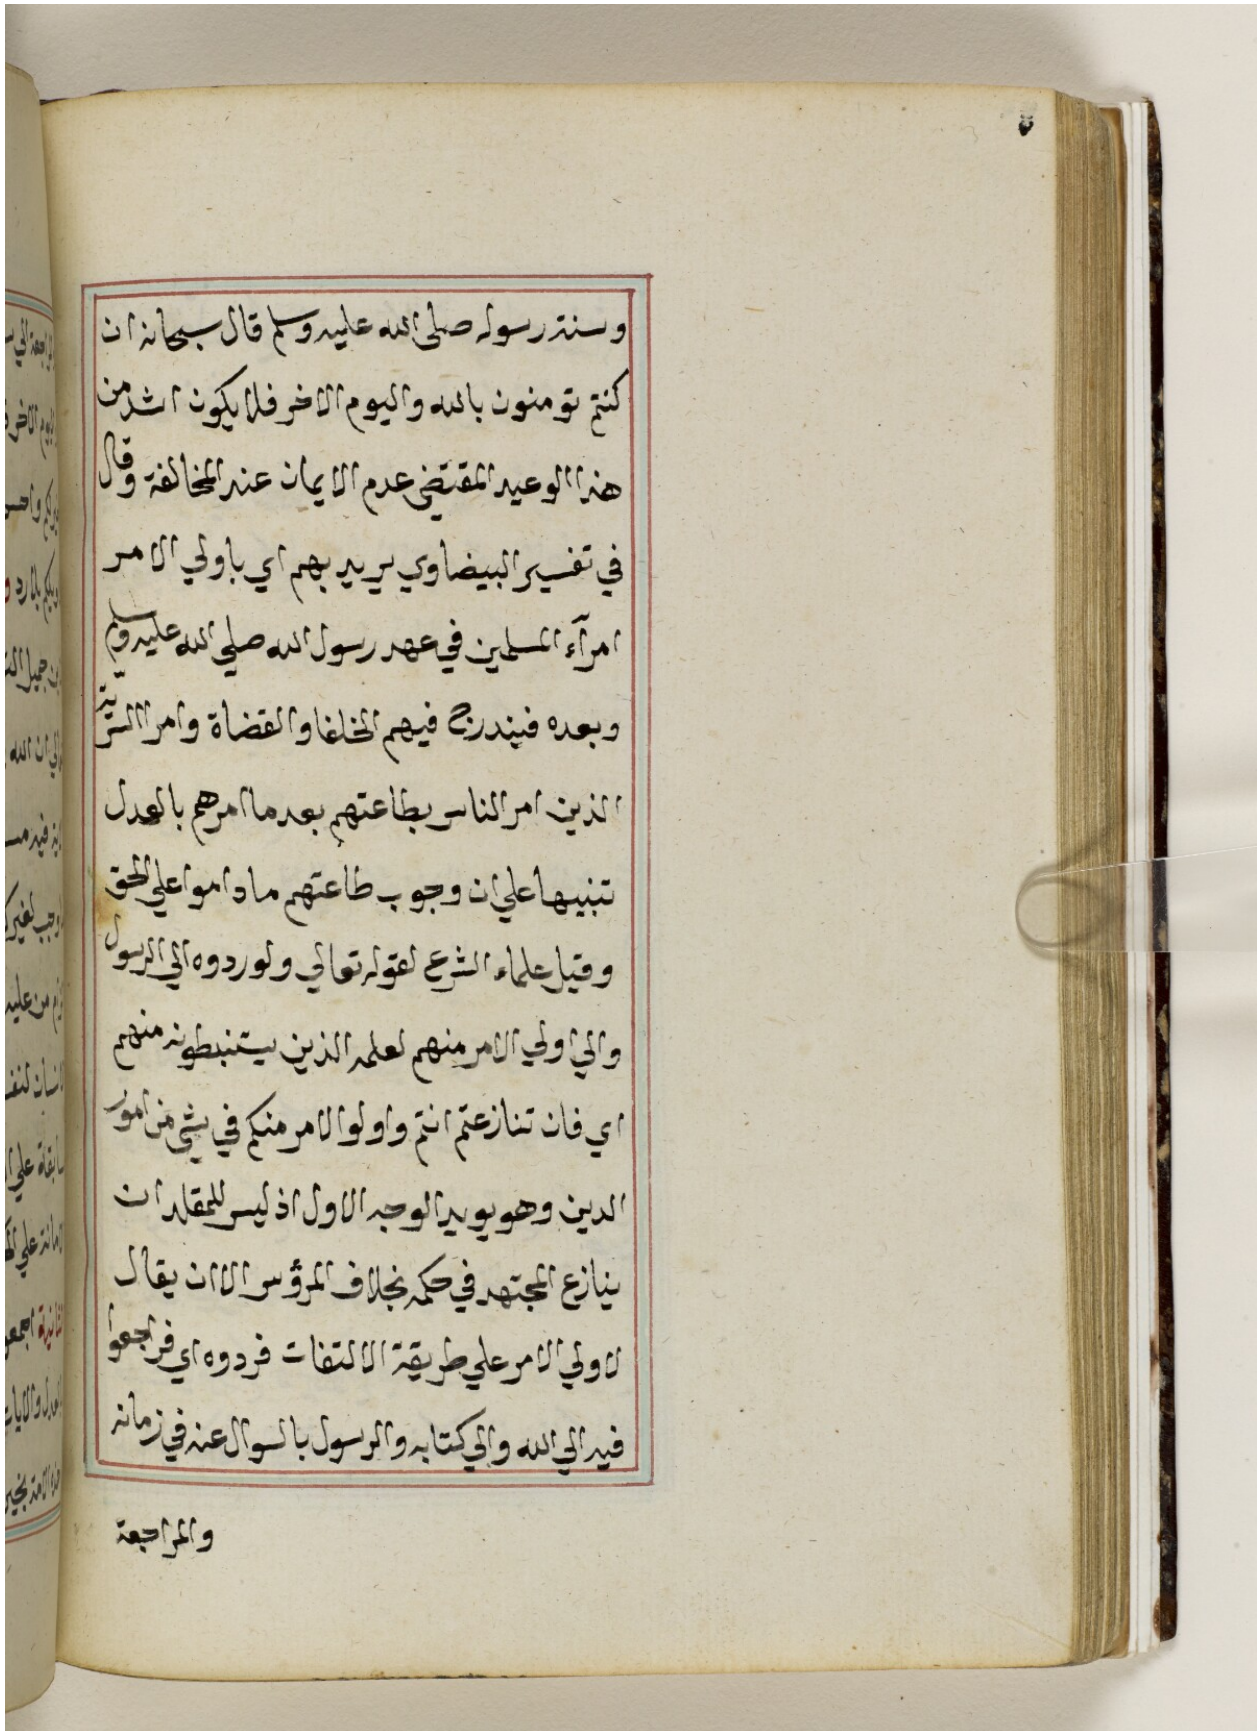 وسنة رسوله صلى الله عليه وسلم قال سبحانه ان
كنتم تومنون بالله واليوم الاخر فلا يكون اشد من
هذا الوعيد المقتضي عدم الايمان عند المخالفة وقال
في تفسير البيضاوي يريد بهم اي باولي الامر
امرآء المسلمين في عهد رسول الله صلي الله عليه وسلم
وبعده فيندرج فيهم الخلفا والقضاة وامرا السرية
الذين امر الناس بطاعتهم بعد ما امرهم بالعدل
تنبيها علي ان وجوب طاعتهم ما داموا علي الحق
وقيل علماء الشرع لقوله تعالي ولو ردوه الي الرسول
والي اولي الامر منهم لعلمه الذين يستنبطونه منهم
اي فان تنازعتم انتم واولوا الامر منكم في شي من امور
الدين وهو يويد الوجه الاول اذ ليس للمقلد ان
ينازع المجتهد في حكمه بخلاف المرؤس الا ان يقال
لاولي الامر علي طريقة الالتفات فردوه اي فراجعوا
فيه الي الله والي كتابه والرسول بالسوال عنه في زمانه
والمراجعة